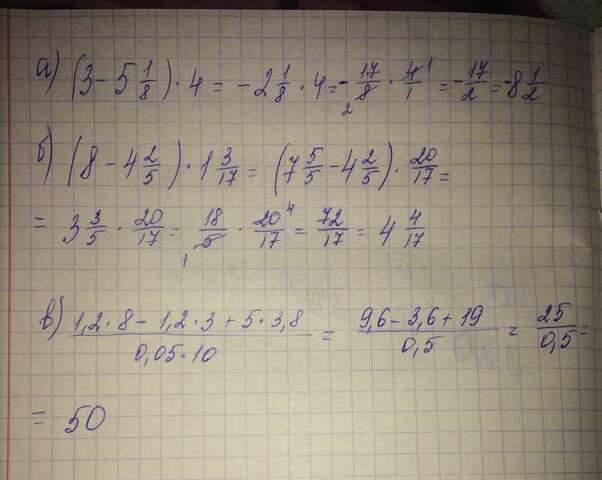 а) (3 - 5 1/8) · 4 = -2 1/8 · 4 = -17/8 · 4/1 = -17/2 = -8 1/2
2 1
б) (8 - 4 2/5) · 1 3/17 = (7 5/5 - 4 2/5) · 20/17 =
= 3 3/5 · 20/17 = 18/5 · 20/17 = 72/17 = 4 4/17
1 4
в) (1,2 · 8 - 1,2 · 3 + 5 · 3,8)/(0,05 · 10) = (9,6 - 3,6 + 19)/0,5 = 25/0,5 =
= 50